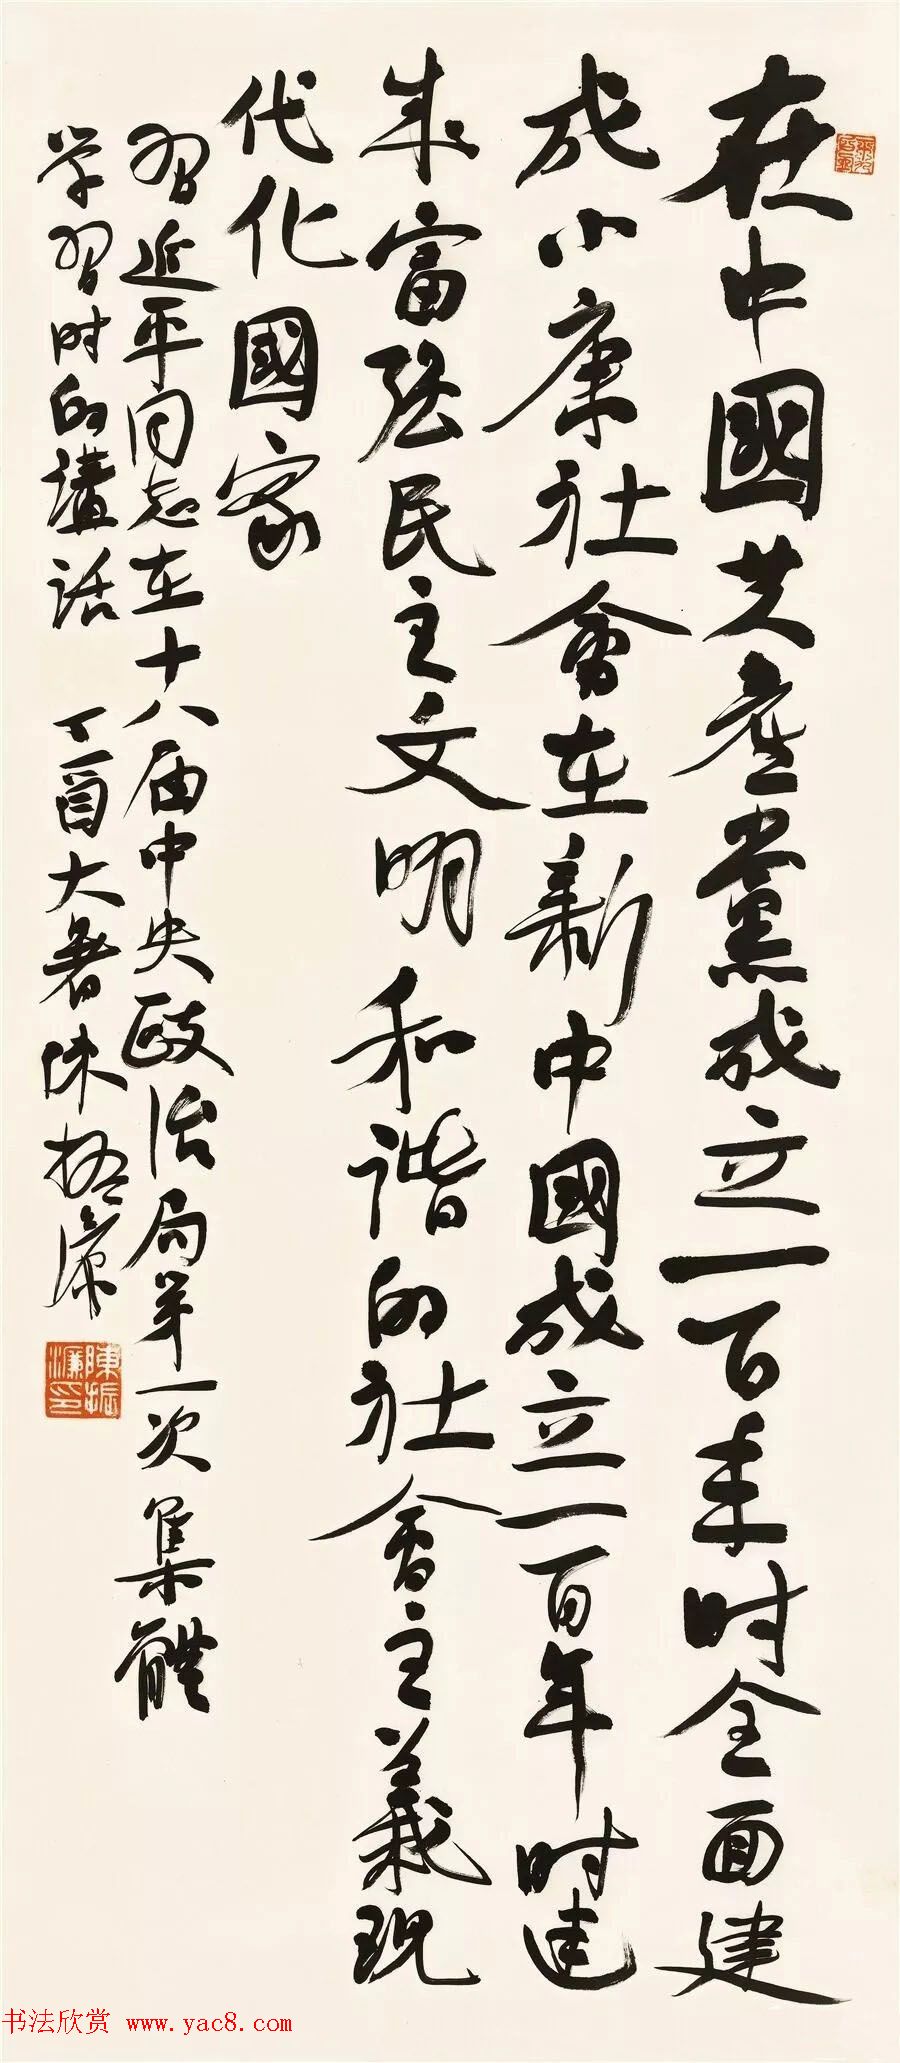 在中國共产黨成立一百年时全面建
成小康社會在新中國成立一百年时建
成富强民主文明和谐的社會主義現
代化國家
習近平同志在十八届中央政治局第一次集體
学習时的講话 丁酉大暑陈振濂
陳振濂印
书法欣赏 www.yac8.com